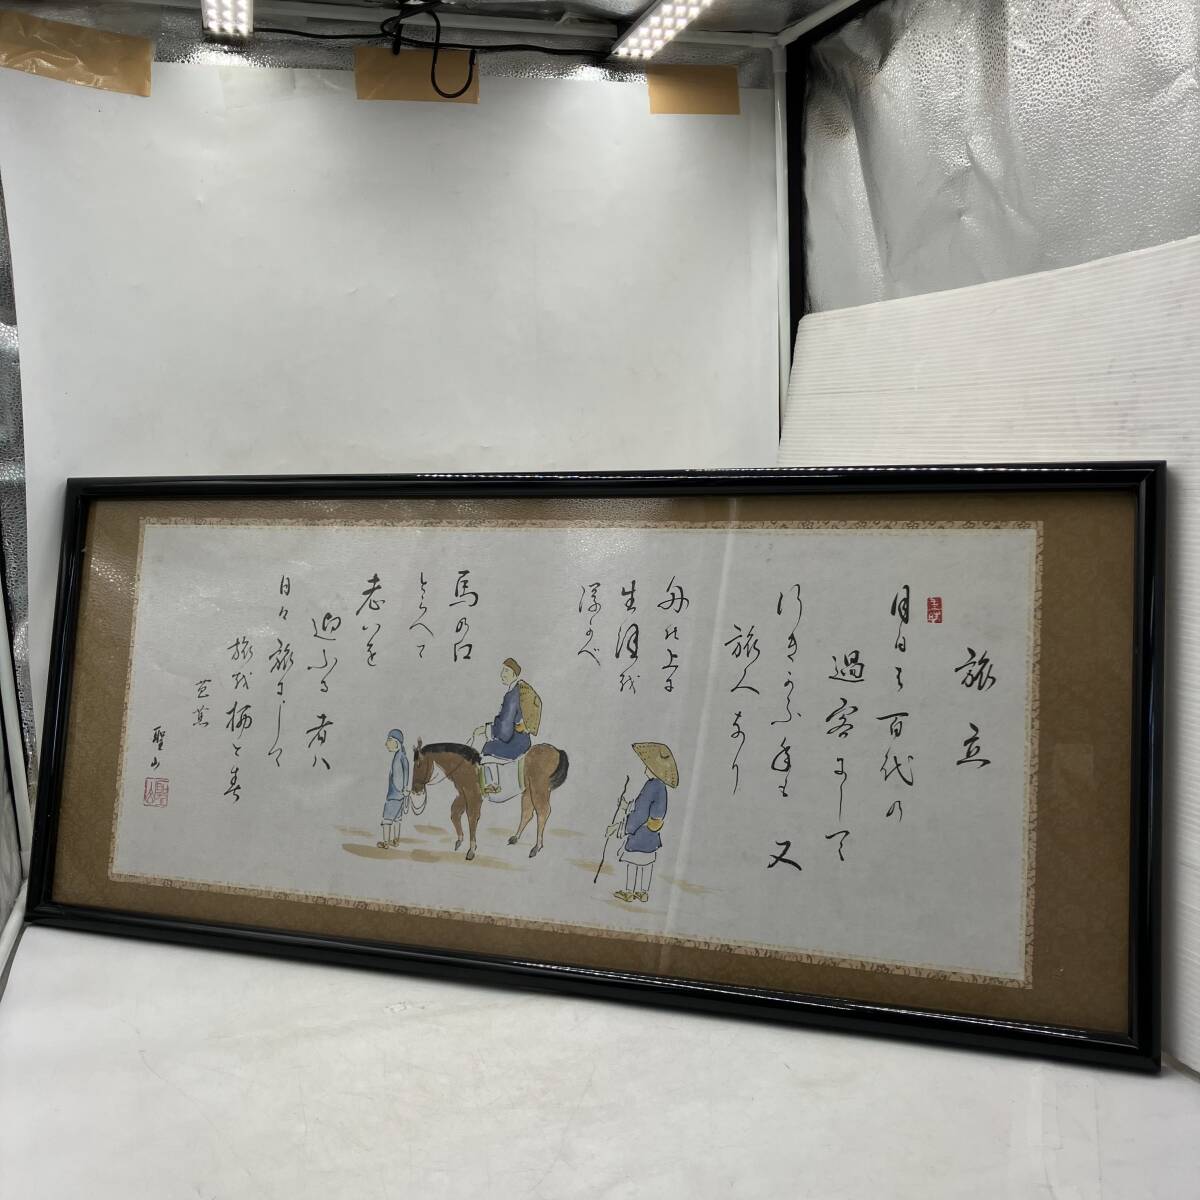 旅立
月日は百代の
過客にして
行きかふ年も又
旅人なり
舟の上に
生涯を
浮かべ
馬の口
とらへて
老いを
迎ふる者は
日々旅にして
旅を栖とす
芭蕉
聖山